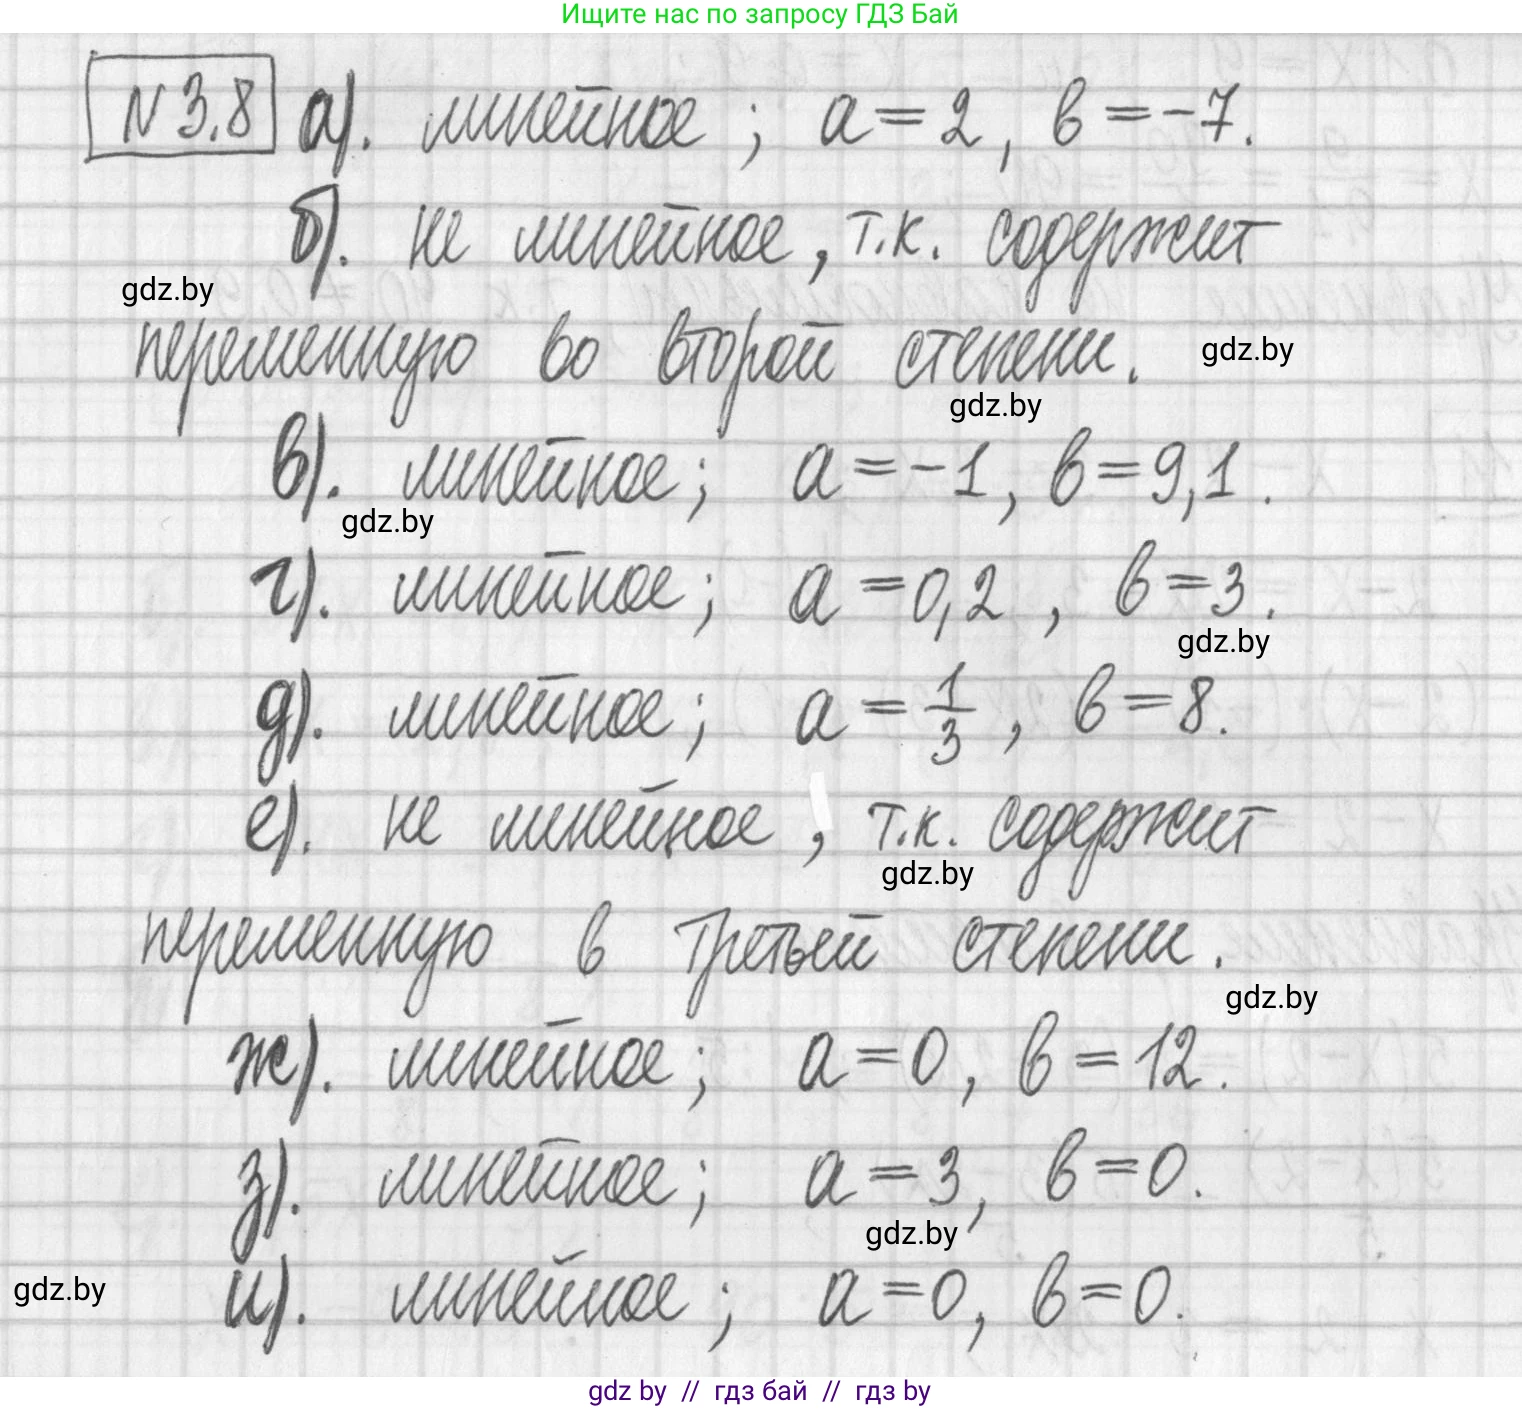 Ищите нас по запросу ГДЗ Бай
N 3.8 а). линейное ; a = 2 , в = -7.
б). не линейное , т.к. содержит
gdz.by
переменную во второй степени.
gdz.by
gdz.by
в). линейное ; a = -1 , в = 9,1 .
gdz.by
г). линейное ; a = 0,2 , в = 3 .
gdz.by
д). линейное ; a = 1/3 , в = 8 .
е). не линейное , т.к. содержит
gdz.by
переменную в третьей степени .
gdz.by
ж). линейное ; a = 0 , в = 12 .
з). линейное ; a = 3 , в = 0.
gdz.by
gdz.by
и). линейное ; a = 0 , в = 0.
gdz by // гдз бай // гдз by